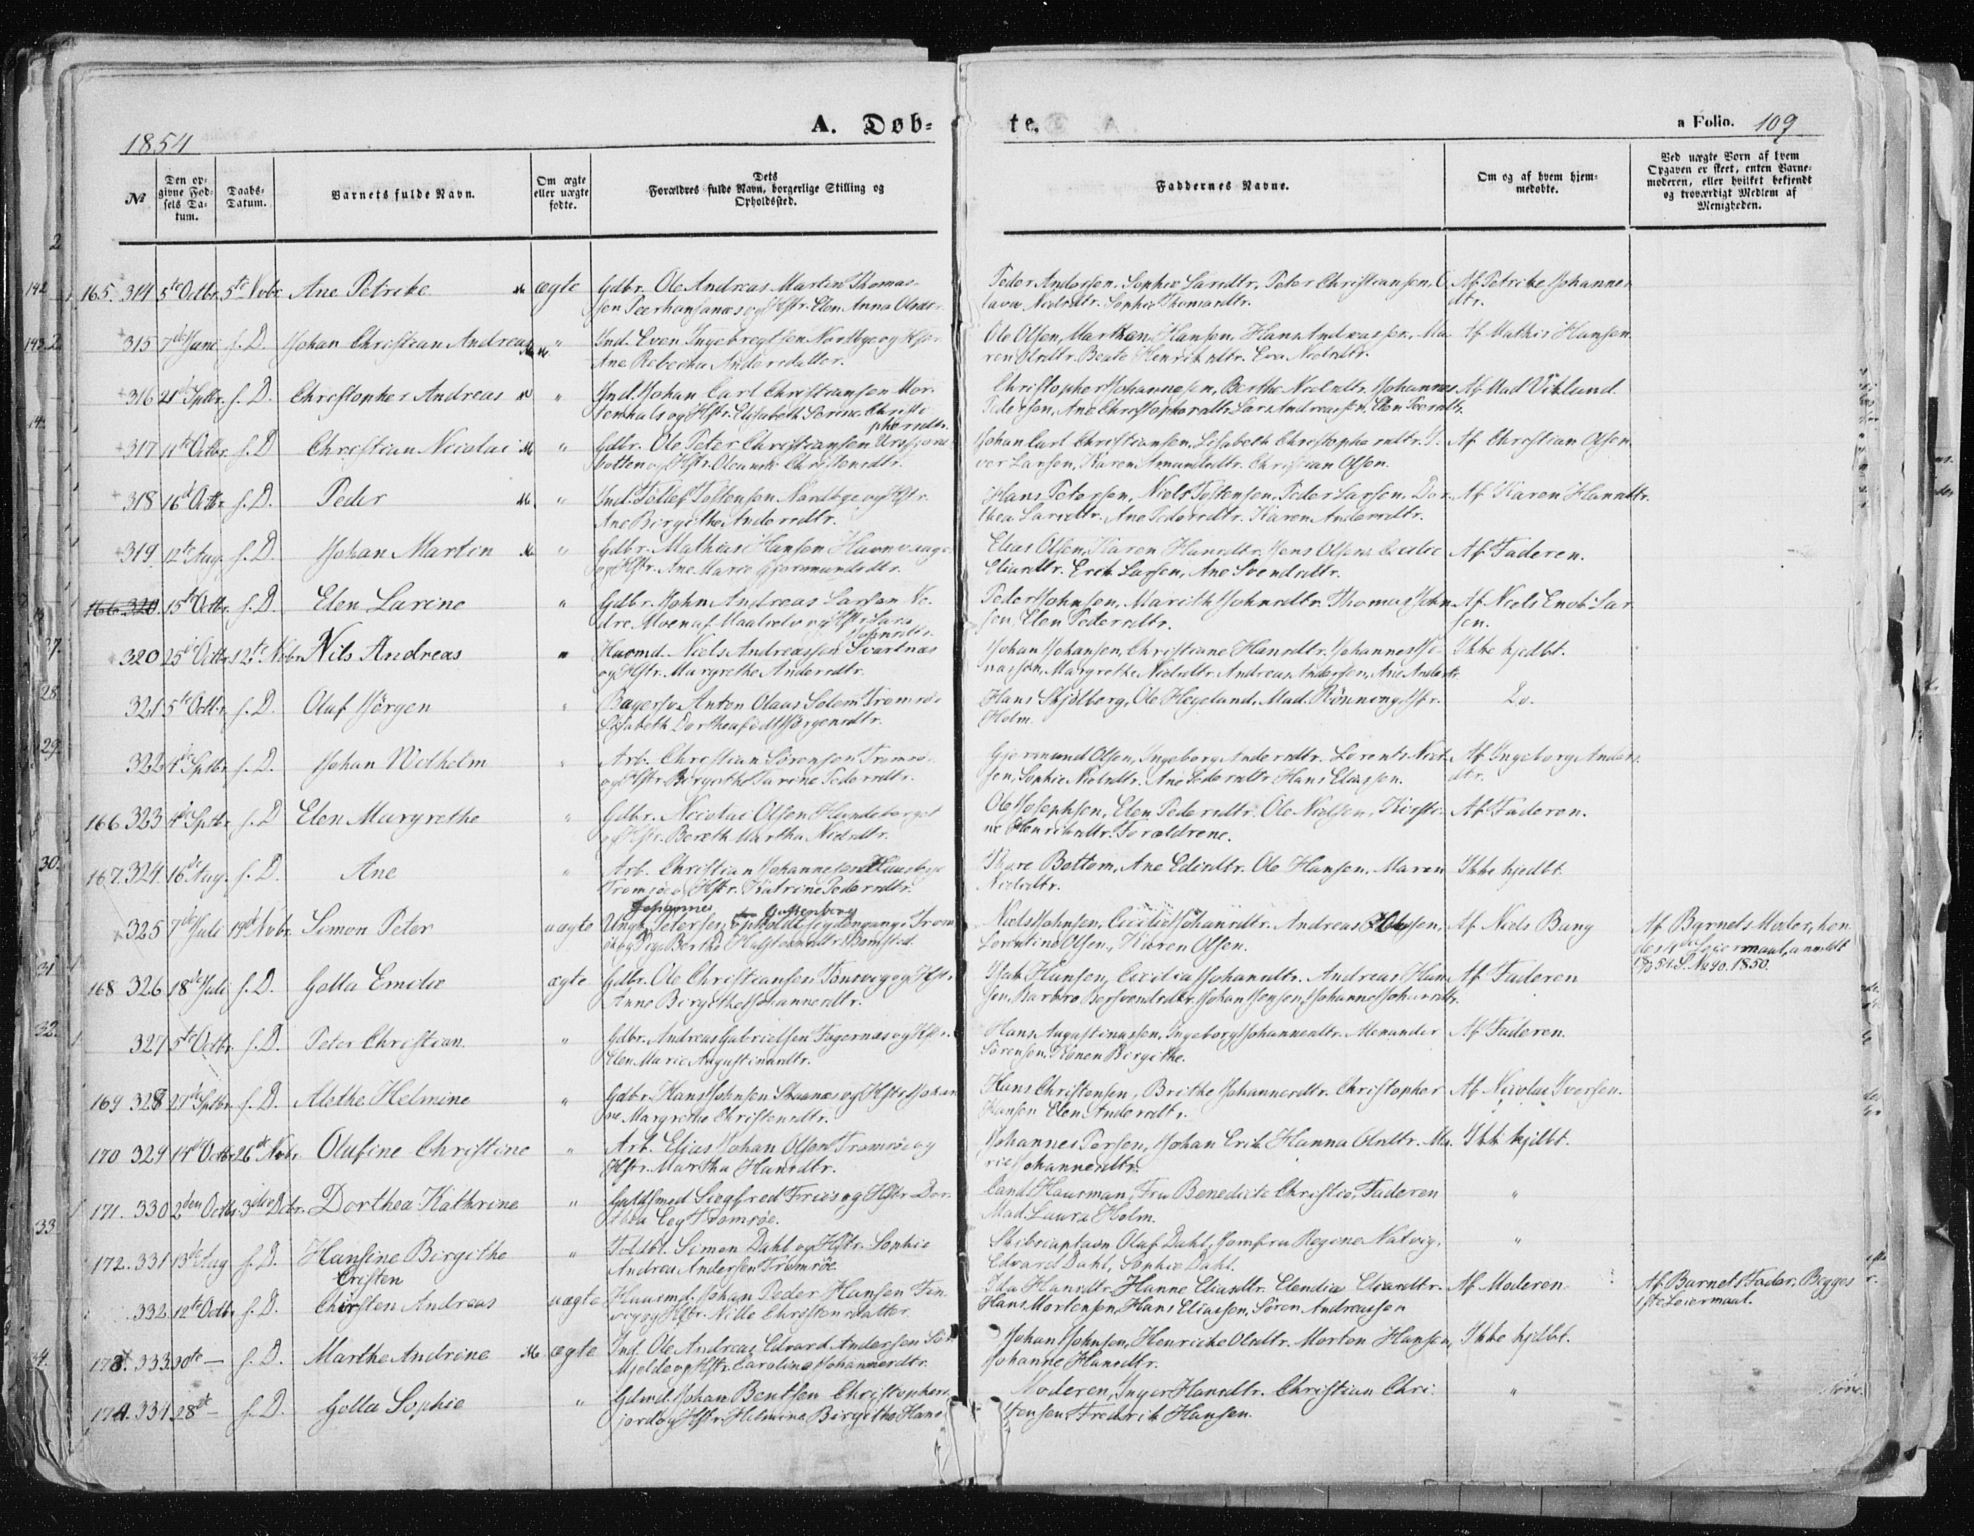 1854
A. Døb-
te.
a Folio. 109
№
Den op-
givne Fød-
sels Da-
tum.
Daabs-
Datum.
Barnets fulde Navn.
Om ægte
eller uægte
fødte.
Dets
Forældres fulde Navn, borgerlige Stilling og
Opholdssted.
Faddernes Navne.
Om og af hvem hjem-
medøbte.
Ved uægte Born af hvem
Opgaven er skeet, enten Barne-
moderen, eller hvilket bekjendt
og troværdigt Medlem af
Menigheden.
165. 314 5te Octbr. 5te Nvbr. Ane Petrike ægte Gdbr. Ole Andreas Martin Thomas-
sen og Hstr. Elen Anna Olsdtr.
Peder Andersen, Sophie Larsdtr, Peter Christiansen, O
lava Nielsdtr. Sophie Thomasdtr.
Af Petrike Johannes
dtr.
315 7de Juni s. D. Johan Christian Andreas " Ind. Even Ingebregtsen Nordbye og Hstr.
Ane Rebecka Andersdatter.
Ole Olsen, Hansen, Hans Andreassen, Ma
ren Olsdtr. Beate Henriksdtr. Eva Nielsdtr.
Af Mathis Hansen.
316 21de Sptbr. s. D. Christopher Andreas " Ind. Johan Carl Christiansen Mor
tenhals og Hstr. Elisabeth Sorine Christo
phersdtr.
Christopher Johannesen, Berthe Nielsdtr. Johannes
Pedersen, Ane Christophersdtr. Lars Andreassen, Elen Peersdtr.
Af Mad Vikland.
317 11te Octbr. s. D. Christian Nicolai " Gdbr. Ole Peter Christiansen
botten og Hstr. Christensdtr.
Johan Carl Christiansen, Lisabeth Christophersdtr. I
ver Larsen, Karen Amundsdtr. Christian Olsen.
Af Christian Olsen.
318 16de Octbr. s. D. Peder " Ind. Tollef Tostensen Nordbye og Hstr.
Ane Birgithe Andersdtr.
Hans Petersen, Niels Tostensen, Peder Larsen, Dor
thea Larsdtr. Ane Pedersdtr. Karen Andersdtr.
Af Karen Hansdtr.
319 12te Aug. s. D. Johan Martin " Gdbr. Mathias Hansen Havnvaag
og Hstr. Ane Marie Gjermundsdtr.
Elias Olsen, Karen Hansdtr. Jens Olsen, Cecilie
Eliasdtr. Erik Larsen, Ane Svendsdtr.
Af Faderen.
166. 320 15te Octbr. s. D. Elen Larine " Gdbr. John Andreas Larsen Ne
dre Moen af Maalselv og Hstr. Lars
Johnsdtr.
Peder Johnsen, Marith Johnsdtr. Thomas John
sen, Elen Pedersdtr.
Af Niels Enok Lar
sen.
320 25de Octbr. 12te Nvbr. Nils Andreas " Huusmd. Niels Andreassen Svartnæs
og Hstr. Margrethe Andersdtr.
Johan Johansen, Christiane Hansdtr. Johannes Jo
nassen, Margrethe Nielsdtr. Andreas Andersen, Ane Andersdtr.
Ikke hjdbt.
321 5te Octbr. s. D. Oluf Jørgen " Bagersv. Anton Olaus Solem Tromsøe
Elisabeth Dorthea født Jørgensdtr.
Hans Skjølberg, Ole Hegeland, Mad. Rønnong, Jfr.
Holm.
Do.
322 4de Sptbr. s. D. Johan Wilhelm " Arb. Christian Sørensen Tromsø
og Hstr. Birgithe Larine Pedersdtr.
Gjermund Olsen, Ingeborg Andersdtr. Lorents Niel
sen, Sophie Nielsdtr. Ane Pedersdtr. Hans Eliassen.
Af Ingeborg Anders
dtr.
166. 323 4de Sptbr. s. D. Elen Margrethe " Gdbr. Nicolai Olsen Hundeberget
og Hstr. Bereth Martha Nielsdtr.
Ole Josephsen, Elen Pedersdtr. Ole Nielsen, Kirsti
ne Henriksdtr. Forældrene.
Af Faderen.
167. 324 16de Aug. s. D. Ane " Arb. Christian Johannesen
Tromsø og Hstr. Katrine Pedersdtr.
Bottom, Ane Ediasdtr. Ole Hansen, Maren
Nielsdtr.
Ikke hjedbt.
325 7de Juli 19de Nvbr. Simon Peter uægte Ungk. Johannes Petersen opholdt sig dengang i Trom
sø og Pige Berthe Halstensdtr.
Niels Johnsen, Cecilie Johansdtr. Andreas Olsen,
Lorentine Olsen, Karen Olsen.
Af Niels Bang
Af Barnets Moder, hen
des 1ste Leiermaal, anmeldt
1850.
168 326 18de Juli s. D. Golla Emilie ægte Gdbr. Ole Christiansen Tønsvig og Hstr.
Anne Birgithe Johannesdtr.
Isak Hansen, Cecilia Johansdtr. Andreas Han
sen, Barbro Bersvendsdtr. Johan Jensen, Johanne Johansdtr.
Af Faderen
327 5te Octbr. s. D. Peter Christian " Gdbr. Andreas Gabrielsen Fagernæs og Hstr.
Elen Marie Augustinusdtr.
Hans Augustinussen, Ingeborg Johannesdtr. Alexander
Sørensen, Konen Birgithe.
Af Faderen.
169 328 21de Sptbr. s. D. Alethe Helmine " Gdbr. Hans Johnsen Skaanæs og Hstr. Johan
ne Margrethe Christensdtr.
Hans Christensen, Brithe Johannesdtr. Christopher
Hansen Elen Andersdtr.
Af Nicolai Iversen.
170 329 14de Octbr. 26de Nvbr. Olufine Christine " Arb. Elias Johan Olsen Tromsø og
Hstr. Martha Hansdtr.
Johannes Persen, Johan Erik, Hanna Olsdtr. Ma
rie Johannesdtr.
Ikk hjdbt.
171. 330 2den Octbr. 3die Dcbr. Dorthea Kathrine " Guldsmed Siegfred Friis og Hstr. Dor
thea Ley Tromsøe.
Cand. Haarman, Fru Benedicte Christie, Faderen
Mad. Laura Holm.
"
172. 331 13de Aug. s. D. Hansine Birgithe " Toldbt. Simon Dahl og Hstr. Sophie
Andrea Andersen Tromsøe.
Skibscaptain Oluf Dahl, Jomfru Regine Natvig.
Edvard Dahl, Sophie Dahl.
"
332 12te Octbr. s. D. Cristen
Andreas uægte Huusmd. Johan Peder Hansen
og Hstr. Nille Christensdatter
Ida Hansdtr. Hanne Eliasdtr. Elendia Edvardsdtr.
Hans Mortensen, Hans Eliassen, Søren Andreassen
Af Moderen
Af Barnets Fader, Begges
1ste Leiermaal.
173. 333 30te — s. D. Marthe Andrine ægte Ind. Ole Andreas Edvard Andersen
Mjelde og Hstr. Carolina Johannesdtr.
Johan Johnsen, Henricke Olsdtr. Morten Hansen,
Johanne Hansdtr.
Ikke hjdbt.
174. 334 28de — s. D. Golla Sophie " Gdmd. Johan Bentsen Christopher
jord og Hstr. Helmine Birgithe Hans
Moderen, Inger Hansdtr. Christian Chri
stensen, Fredrik Hansen.
"